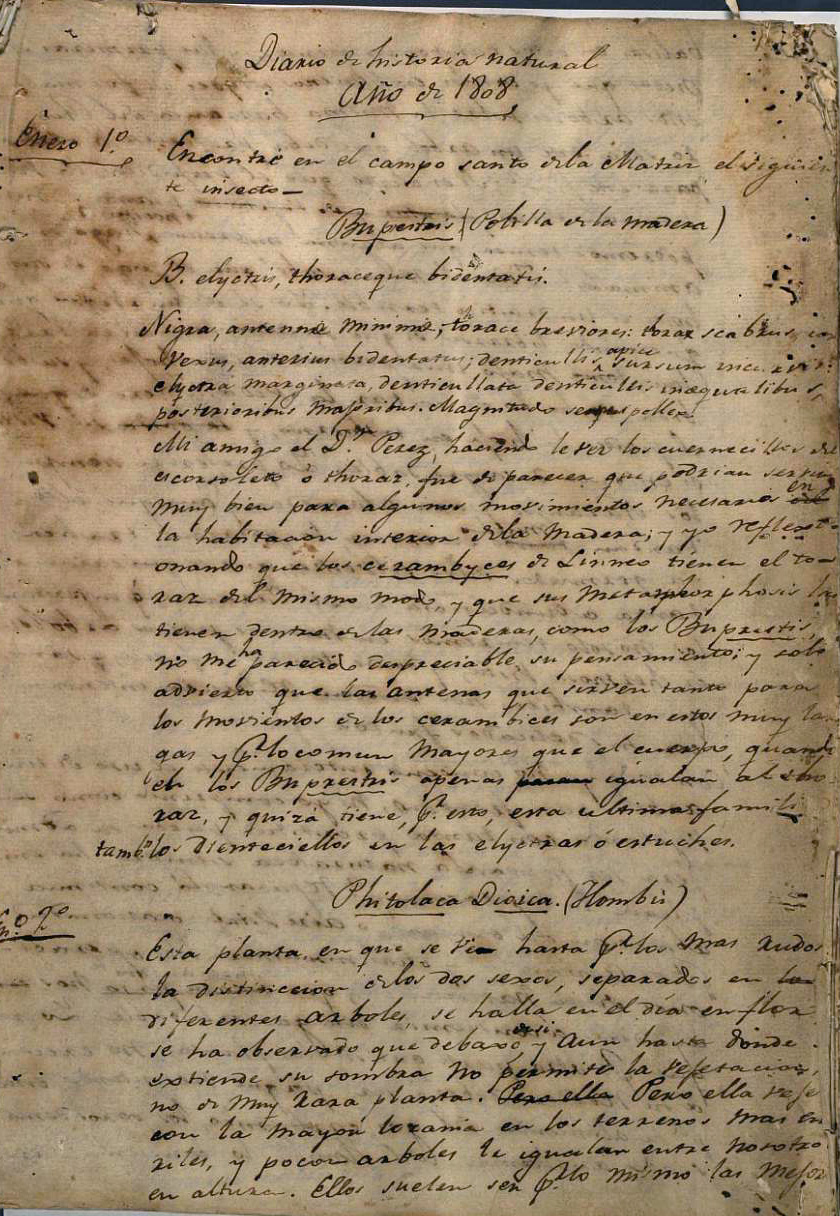 Diario de historia natural
Año de 1808
Enero 1.º
Encontré en el campo santo de la Matriz el siguien
te insecto —
Buprestris (Polilla de la madera)
B. elyctris, thoraceque bidentatis.
Nigra, antennæ minimæ, thorace breviores: thorax scabrus,
vexus, anterius bidentatus; denticullis apice sursum
elyctra marginata, denticullata denticullis inæqualibus,
posterioribus majoribus. Magnitudo
Mi amigo el D.r Perez, haciendo le ver los cuernecillos del
escorseleto ó thorax, fue de parecer que podrian servir
muy bien para algunos movimientos necesarios en
la habitacion interior de la madera; y yo reflexi
onando que los cerambyces de Linneo tienen el to
rax del mismo modo, y que sus metamorphosis las
tienen dentro de las maderas, como los Buprestis,
no me ha parecido despreciable su pensamiento; y solo
advierto que las antenas que sirven tanto para
los movientos de los cerambices son en estos muy lar
gas y p.r lo comun mayores que el cuerpo, quando
en los Buprestris apenas igualan al tho
rax, y quizá tiene, p.r esto, esta ultima famili
tamb.n los dienteciellos en las elyctras ó estuches.
Phitolaca Dioica. (Hombú)
En.º 2.º
Esta planta en que se ve hasta p.r los mas rudos
la distinccion de los dos sexos, separados en
diferentes arboles, se halla en el día en flor
se ha observado que debaxo de si y aun hasta donde
extiende su sombra no permite la vejetacion,
no de muy rara planta. Pero ella Pero ella veje
con la mayor lozania en los terrenos mas es
riles, y pocos arboles le igualan entre nosotro
en altura. Ellos suelen ser p.r lo mismo las mejor